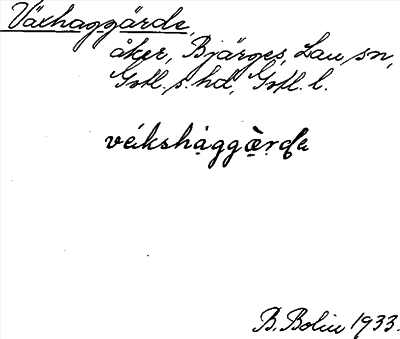 Växhaggärde,
åker, Bjärges, Lau sn,
Gotl. s. hd, Gotl. l.
véikshàggæ̀rde
B. Bolin 1933.